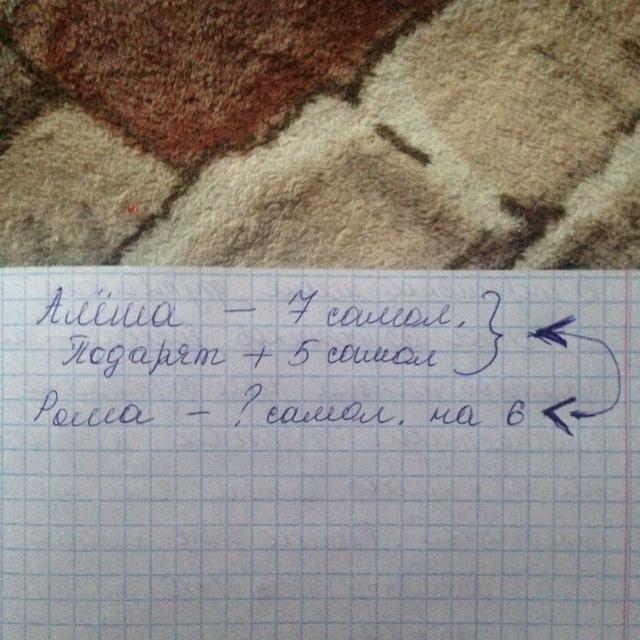 Алёша – 7 самол.
Подарят + 5 самол
Рома – ? самол. на 6 <